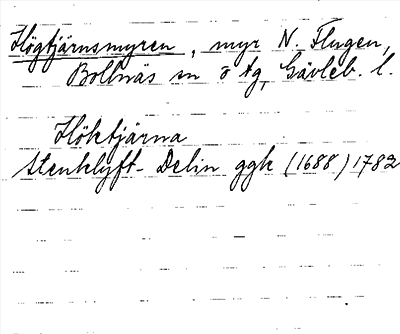 Högtjärnsmyren, myr N. Flugen,
Bollnäs sn o tg, Gävleb. l.
Höktjärna
Stenklyft- Delin ggk (1688) 1782